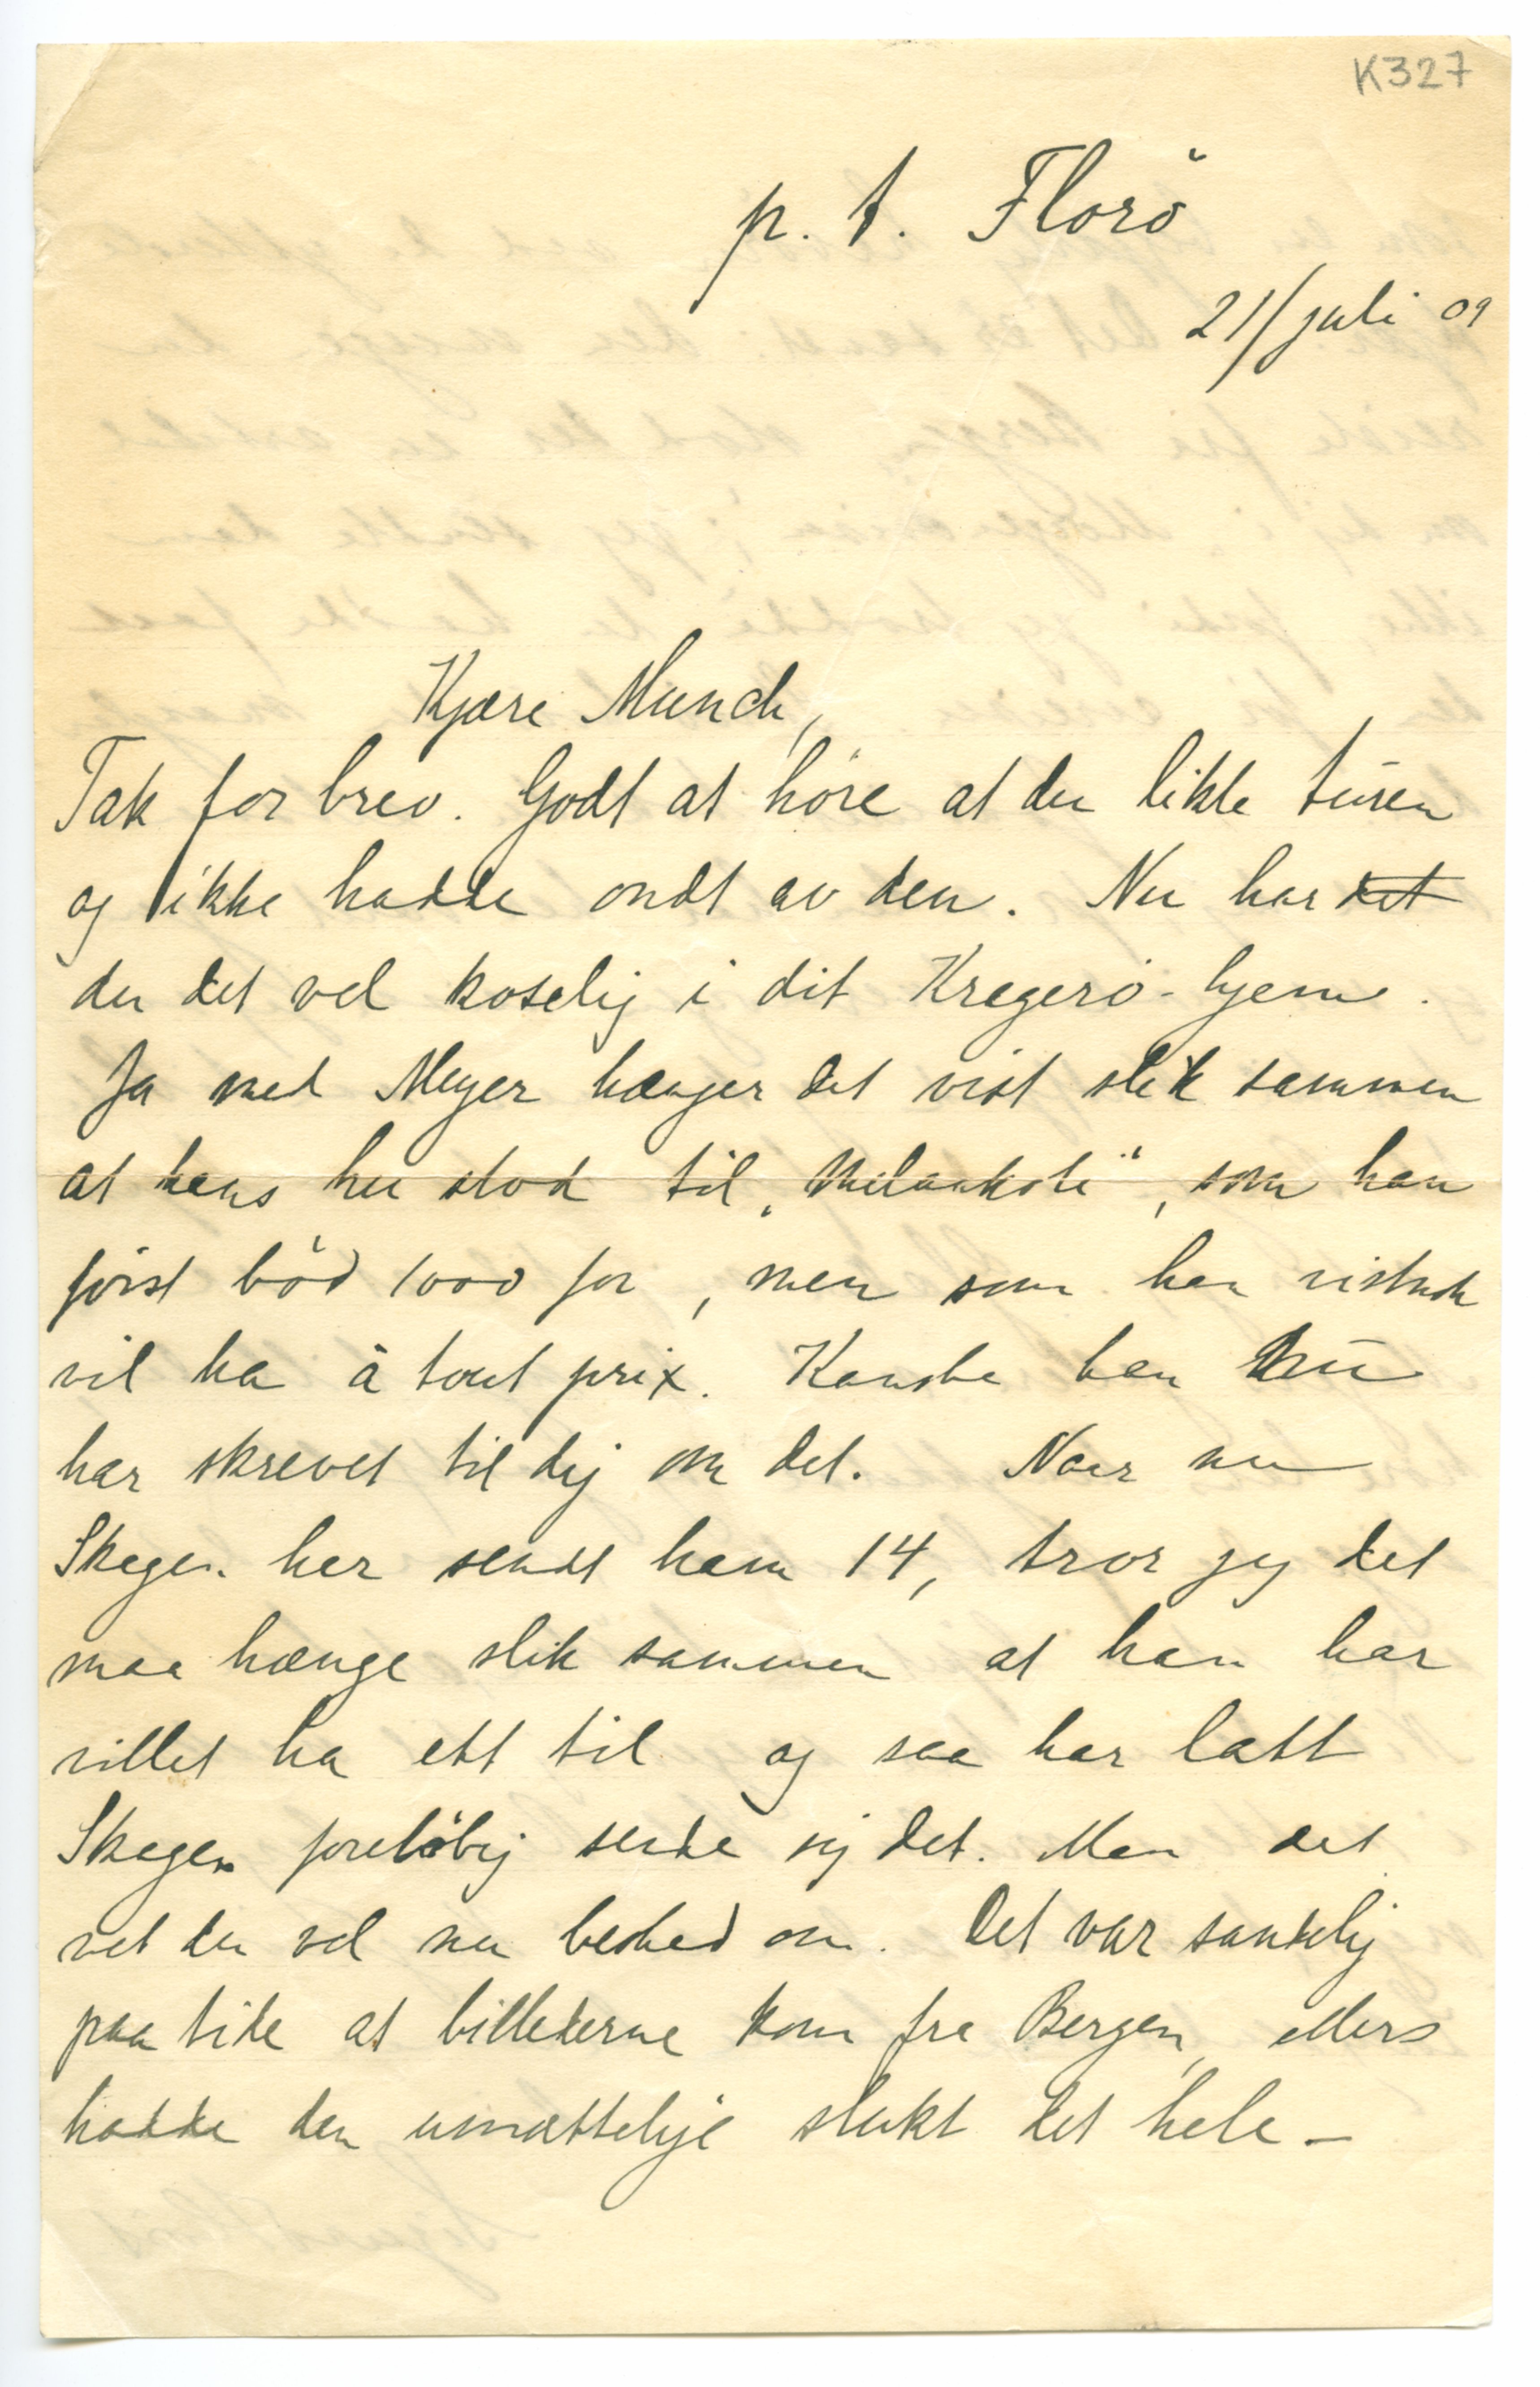 K327
p. t. Florö
21/juli 09
Kjære Munch,
Tak for brev. Godt at höre at du likte turen
og ikke hadde ondt av den. Nu har det
du det vel koselig i dit Kragerö-hjem.
Ja med Meyer hænger det vist slik sammen
at hans hu stod til „Melankoli“, som han
först böd 1000 for, men som han nistnok
vil ha à tout prix. Kanske han nu
har skrevet til dig om det. Naar nu
Skagen har sendt ham 14, tror jeg det
maa hænge slik sammen at han har
villet ha ett til og saa har latt
Skagen forelöbig sende sig det. Men det
vet du vel nu besked om. Det var sandelig
paa tide at billederne kom fra Bergen, ellers
hadde den umættelige slukt det hele –